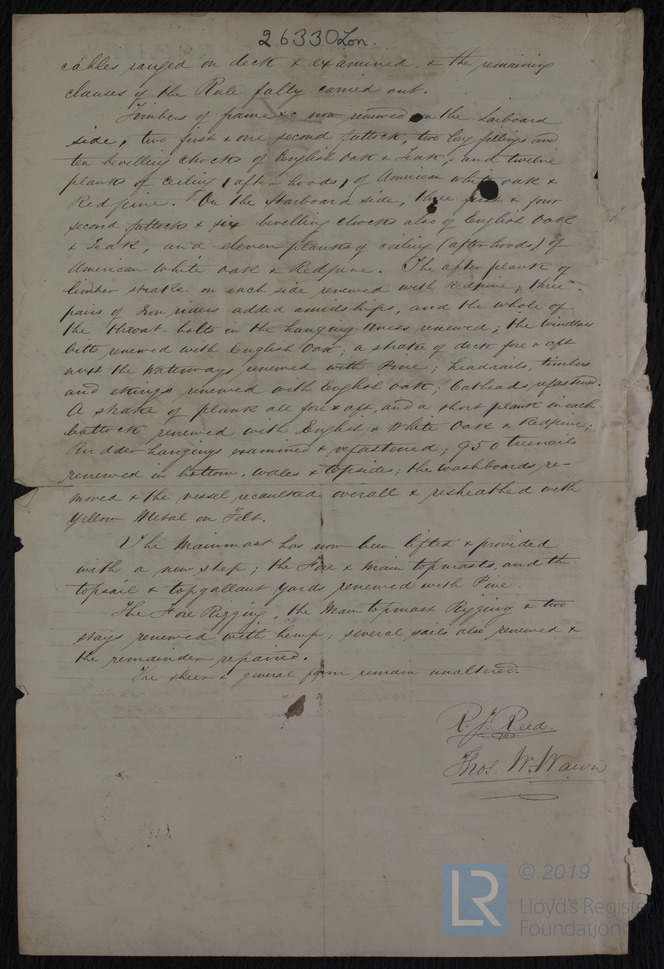 26330 Lon.
cables ranged on deck & examined & the remaining
clauses of the Rule fully carried out.
Timbers of frame &c now renewed on the Larboard
side; two first & one second futtock, two long fillings and
ten bevelling chocks of English Oak & Teak, and twelve
planks of ceiling (after hoods) of American white oak &
Red pine. On the Starboard side, three first & four
second futtocks & six bevelling chocks also of English Oak
& Teak, and eleven planks of ceiling (after hoods) of
American White Oak & Red pine. The after plank of
limber strake on each side renewed with Red pine, three
pairs of Iron riders added amidships, and the whole of
the throat bolts in the hanging knees renewed; the windlass
bitts renewed with English Oak; a strake of deck fore & aft
next the Waterways renewed with Pine; headrails, timbers
and ekeings renewed with English oak; Catheads refastened.
A strake of plank all fore & aft, and a short plank in each
buttock renewed with English & White Oak & Redpine;
Rudder hangings examined & refastened; 950 treenails
renewed in bottom, wales & topsides; the washboards re-
moved & the vessel recaulked overall & resheathed with
Yellow Metal on Felt.
The Mainmast has now been lifted & provided
with a new step; the Fore & Main topmasts, and the
topsail & topgallant yards renewed with Pine.
The Fore Rigging, the Main topmast Rigging & two
stays renewed with hemp, several sails also renewed &
the remainder repaired.
The sheer & general form remain unaltered.
R. J. Reed.
Thos. W. Wawn
LR
© 2019
Lloyd's Register
Foundation